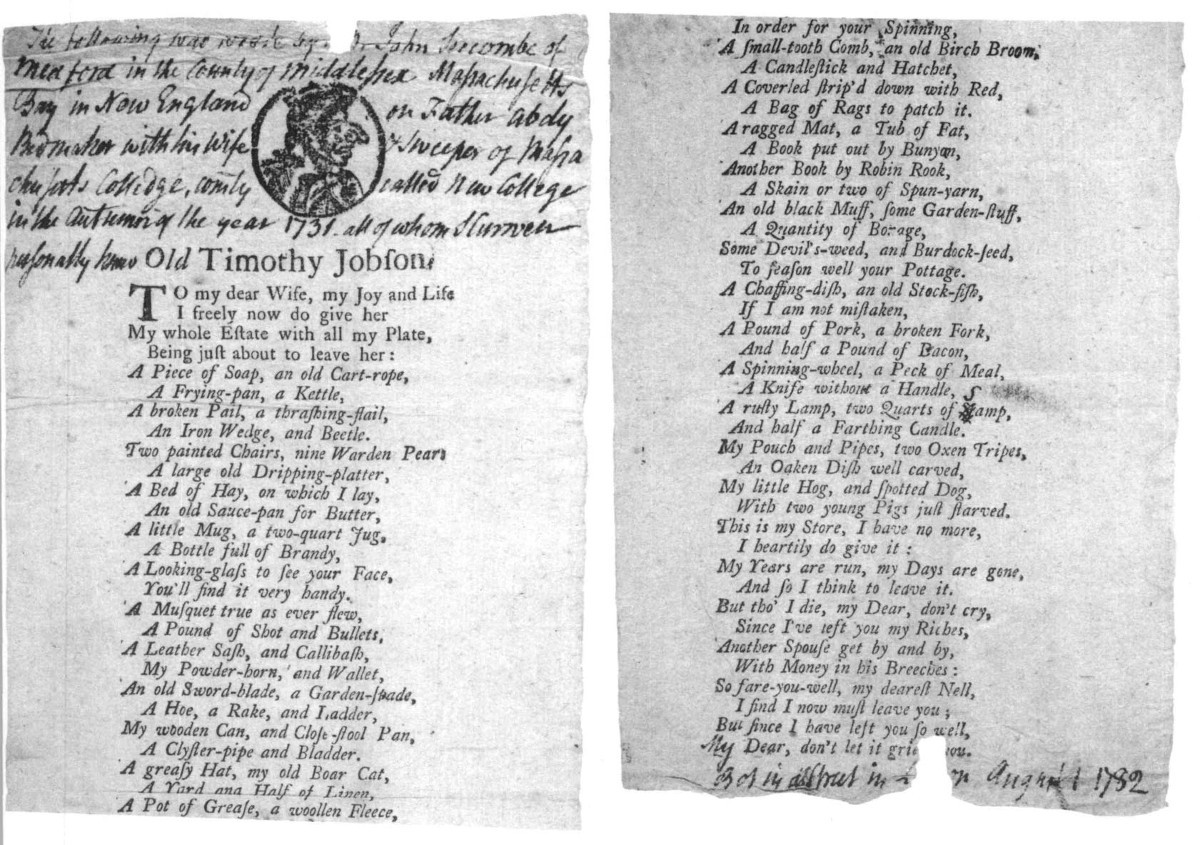 The following was wrote by Mr John Seccombe of
Medford in the County of Middlesex Maſsachusetts
Bay in New England on Father Abdy
Bedmaker with his Wife & Sweeper of Maſsa
chuſetts Colledge, called New College
in the Autumn of the year 1731. all of whom
perſonally knew
Old Timothy Jobſon.
TO my dear Wife, my Joy and Life
I freely now do give her
My whole Eſtate with all my Plate,
Being juſt about to leave her:
A Piece of Soap, an old Cart-rope,
A Frying-pan, a Kettle,
A broken Pail, a thraſhing-flail,
An Iron Wedge, and Beetle.
Two painted Chairs, nine Warden Pears
A large old Dripping-platter,
A Bed of Hay, on which I lay,
An old Sauce-pan for Butter,
A little Mug, a two-quart Jug,
A Bottle full of Brandy,
A Looking-glaſs to ſee your Face,
You'll find it very handy.
A Muſquet true as ever flew,
A Pound of Shot and Bullets,
A Leather Saſh, and Callibaſh,
My Powder-horn, and Wallet,
An old Sword-blade, a Garden-ſpade,
A Hoe, a Rake, and Ladder,
My wooden Can, and Cloſe-ſtool Pan,
A Clyſter-pipe and Bladder.
A greaſy Hat, my old Boar Cat,
A Yard and Half of Linen,
A Pot of Greaſe, a woollen Fleece,
In order for your Spinning,
A ſmall-tooth Comb, an old Birch Broom,
A Candleſtick and Hatchet,
A Coverled ſtrip'd down with Red,
A Bag of Rags to patch it.
A ragged Mat, a Tub of Fat,
A Book put out by Bunyan,
Another Book by Robin Rook,
A Skain or two of Spun-yarn,
An old black Muff, ſome Garden-ſtuff,
A Quantity of Borage,
Some Devil's-weed, and Burdock-ſeed,
To ſeaſon well your Pottage.
A Chaffing-diſh, an old Stock-fiſh,
If I am not miſtaken,
A Pound of Pork, a broken Fork,
And half a Pound of Bacon,
A Spinning-wheel, a Peck of Meal,
A Knife without a Handle,
A ruſty Lamp, two Quarts of Samp,
And half a Farthing Candle.
My Pouch and Pipes, two Oxen Tripes,
An Oaken Diſh well carved,
My little Hog, and ſpotted Dog,
With two young Pigs juſt ſtarved.
This is my Store, I have no more,
I heartily do give it:
My Years are run, my Days are gone,
And ſo I think to leave it.
But tho' I die, my Dear, don't cry,
Since I've left you my Riches,
Another Spouſe get by and by,
With Money in his Breeches:
So fare-you-well, my deareſt Nell,
I find I now muſt leave you;
But ſince I have left you ſo well,
My Dear, don't let it you.
in in August 1732